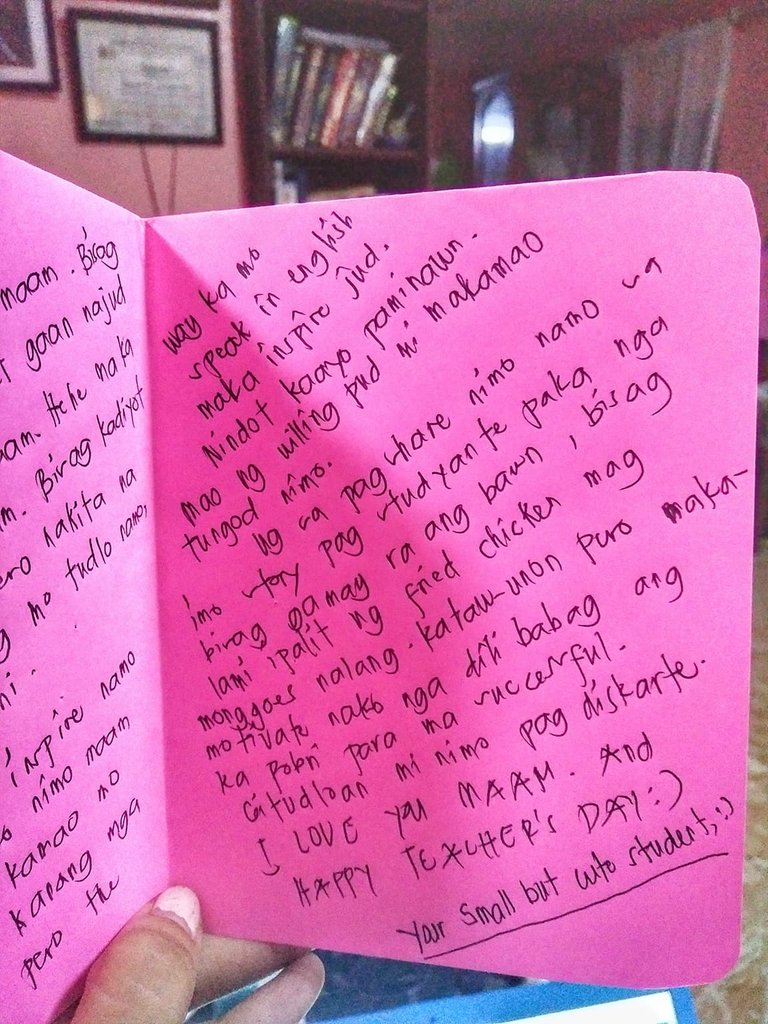 maam. Bisag
gaan najud
aam. Hehe naka
m. Bisag kadiyot
ero nakita na
g mo tudlo namo,
ni.
inspire namo
nimo maam
kamao mo
karang mga
pero the
way ka mo
speak in english
maka inspire jud.
Nindot kaayo paminawn.
mao ng willing pud mi makamao
tungod nimo.
Ug sa pag share nimo namo sa
imo story pag studyante paka nga
bisag gamay ra ang bawn, bisag
lami ipalit ug fried chicken mag
monggoes nalang. Kataw-unon pero maka-
motivate nako nga dili babag ang
ka pobri para ma successful.
Gitudloan mi nimo pag diskarte.
I LOVE you MAAM. And
HAPPY TEACHER'S DAY :)
Your small but cute student, :)